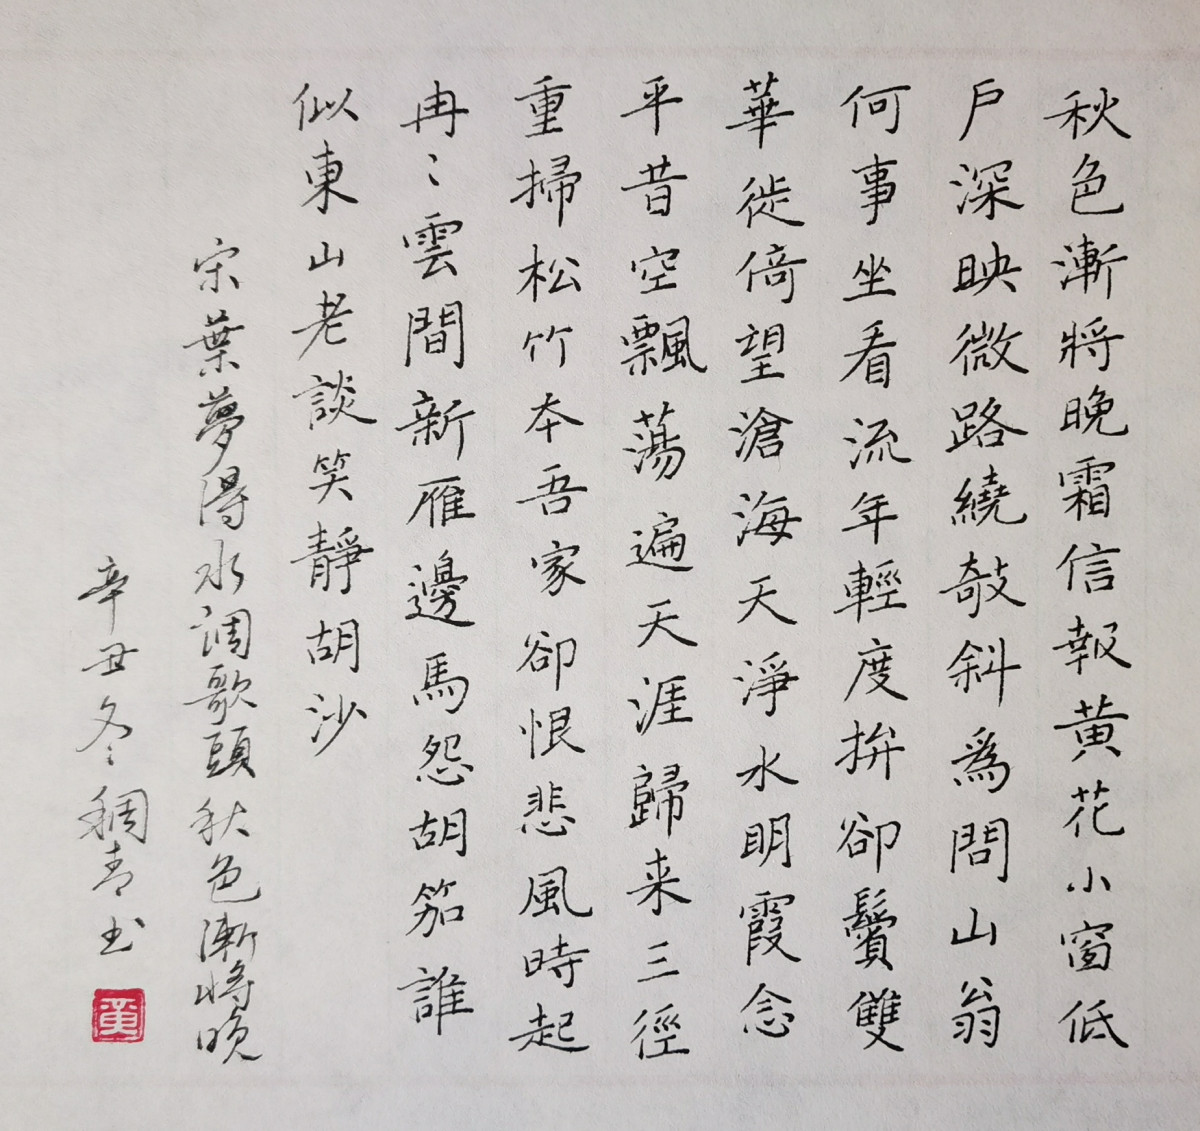 秋色漸將晚霜信報黄花小窗低
户深映微路繞敧斜爲問山翁
何事坐看流年輕度拚卻鬢雙
華徙倚望滄海天淨水明霞念
平昔空飄蕩遍天涯歸来三徑
重掃松竹本吾家卻恨悲風時起
冉〻雲間新雁邊馬怨胡笳誰
似東山老談笑靜胡沙
宋葉夢得水调歌頭秋色漸將晚
辛丑冬稠青书
黄